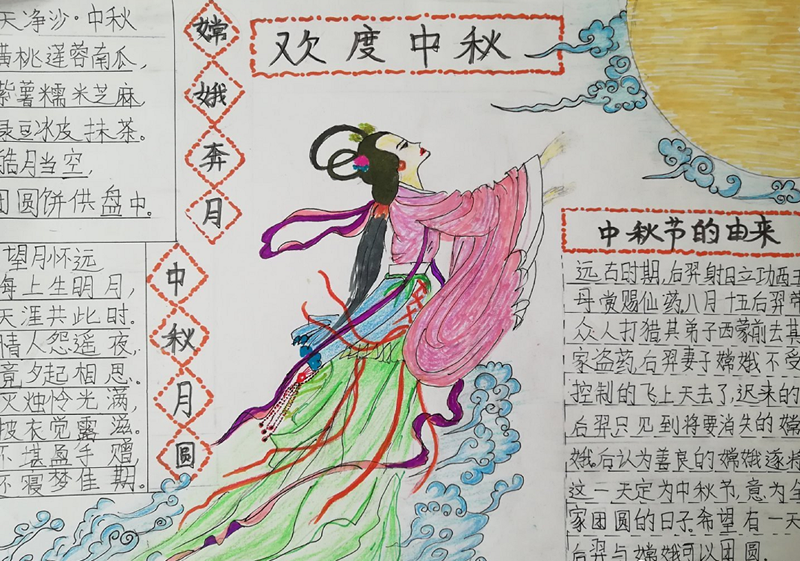 天净沙·中秋
黄桃莲蓉南瓜,
紫薯糯米芝麻
绿豆冰皮抹茶。
皓月当空,
团圆饼供盘中。
望月怀远
海上生明月,
天涯共此时。
情人怨遥夜,
竟夕起相思。
灭烛怜光满,
披衣觉露滋。
不堪盈手赠
还寝梦佳期。
嫦娥奔月
中秋月圆
欢度中秋
中秋节的由来
远古时期,后羿射日立功西王
丹赏赐仙药,八月十五后羿带
众人打猎其弟子西蒙前去其
家盗药,后羿妻子嫦娥不受
控制的飞上天去了,迟来的
后羿只见到将要消失的嫦
娥,后认为善良的嫦娥逐将
这一天定为中秋节,意为全
家团圆的日子.希望有一天
后羿与嫦娥可以团圆.